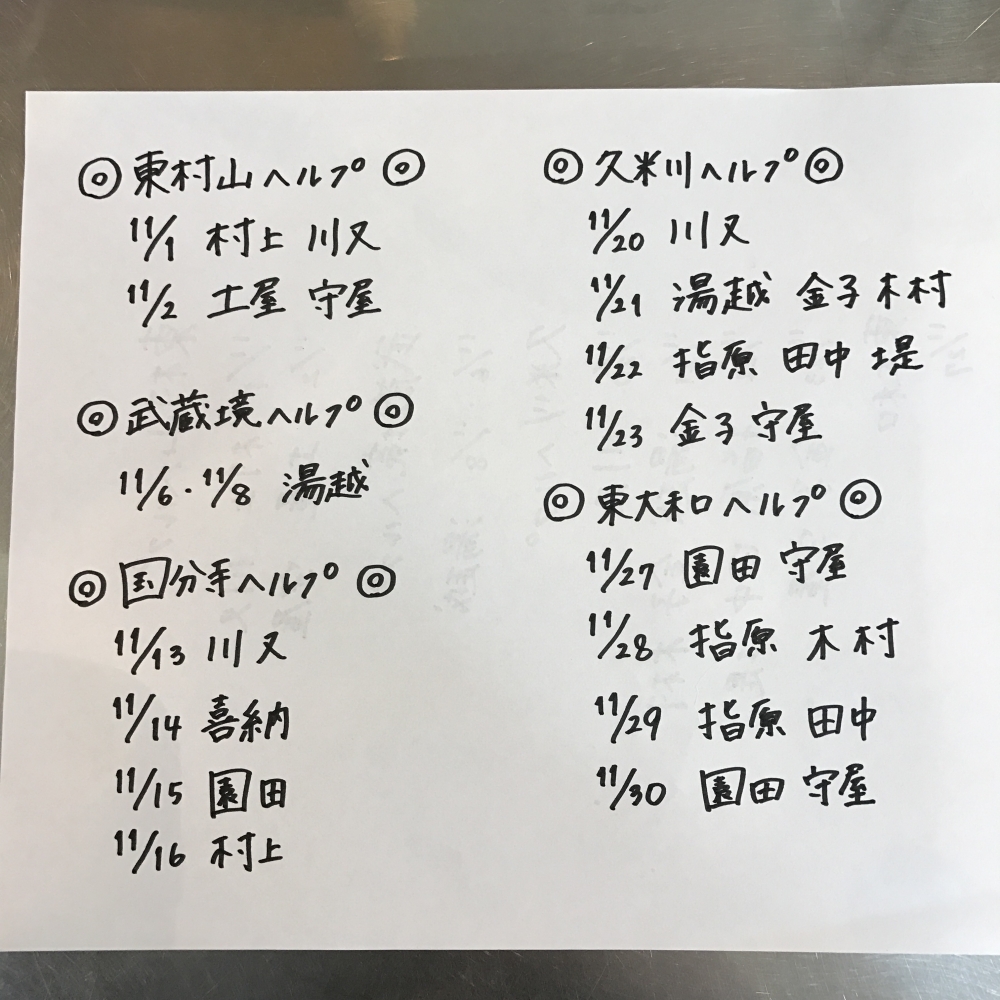 ◎東村山ヘルプ◎
11/1 村上 川又
11/2 土屋 守屋
◎武蔵境ヘルプ◎
11/6・11/8 湯越
◎国分寺ヘルプ◎
11/13 川又
11/14 喜納
11/15 園田
11/16 村上
◎久米川ヘルプ◎
11/20 川又
11/21 湯越 金子 木村
11/22 指原 田中 堤
11/23 金子 守屋
◎東大和ヘルプ◎
11/27 園田 守屋
11/28 指原 木村
11/29 指原 田中
11/30 園田 守屋